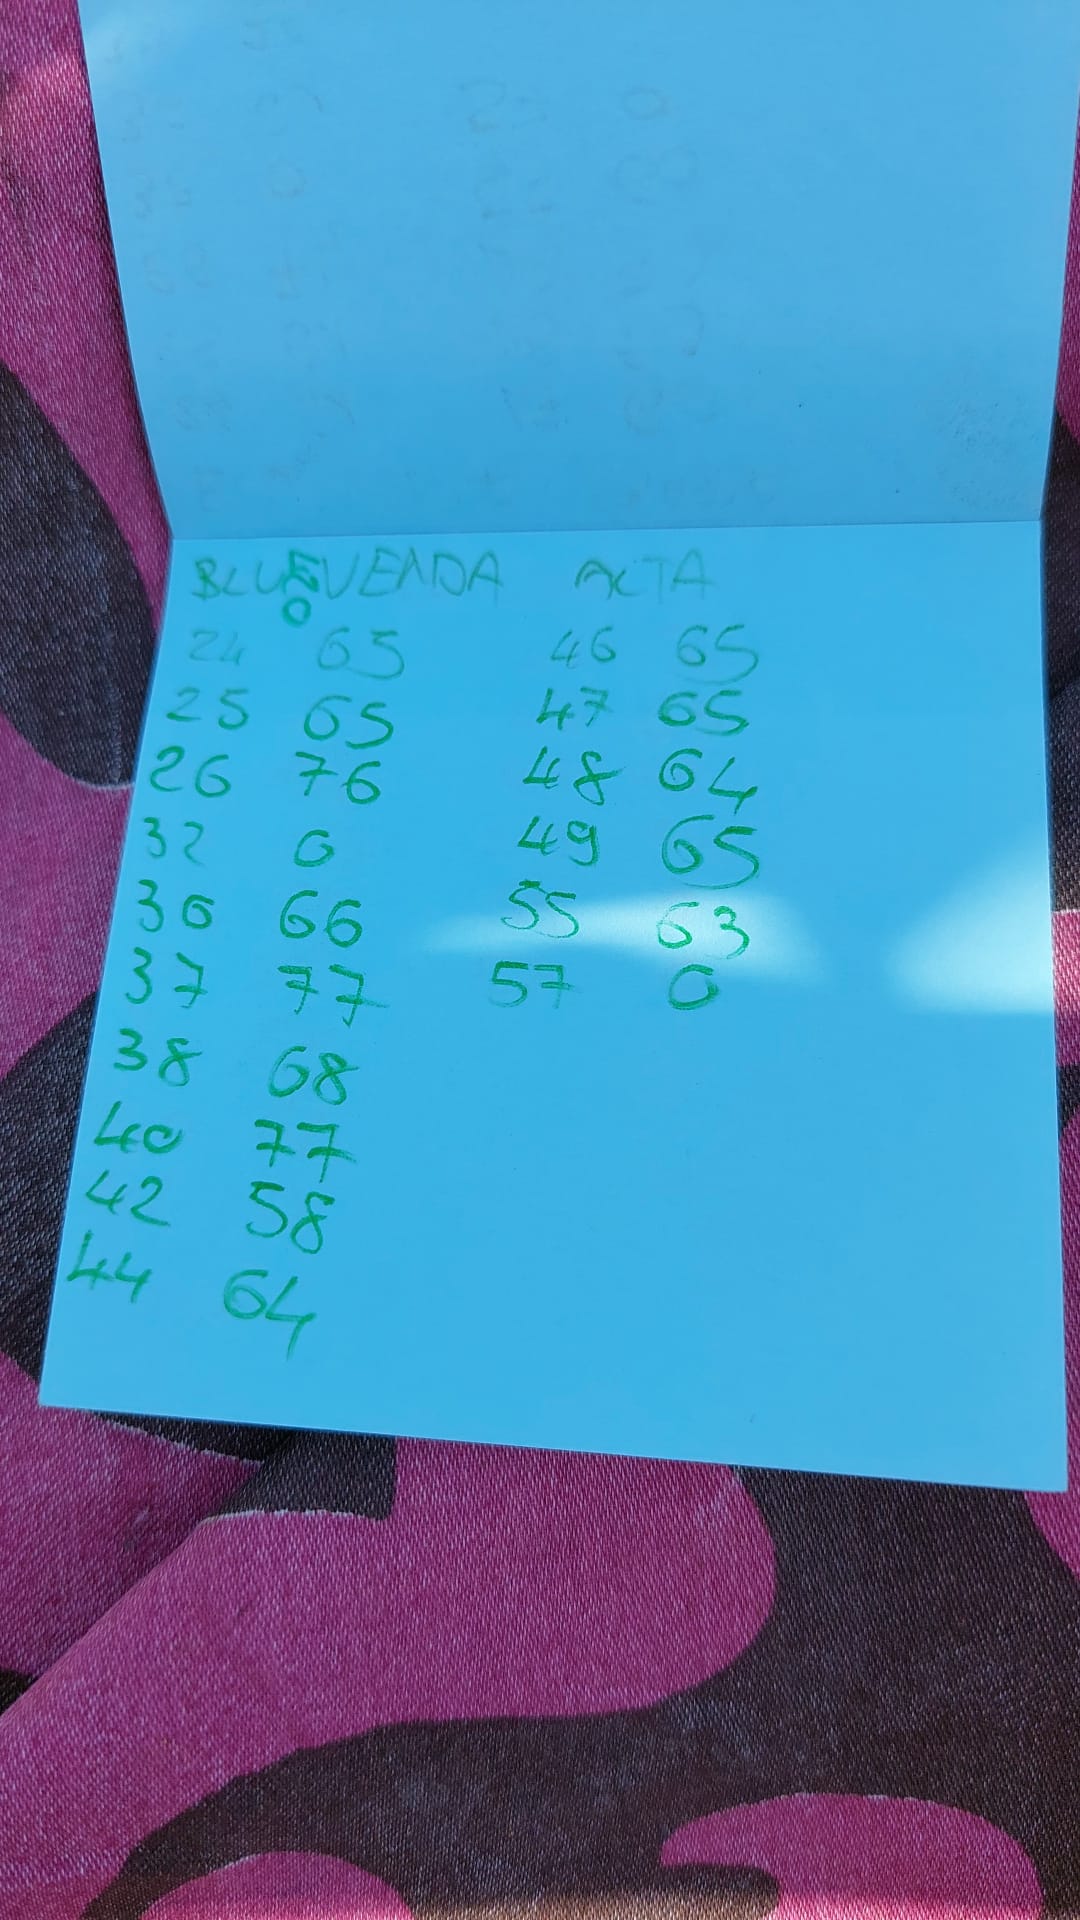 BLUE VENDA ALTA
24 65 46 65
25 65 47 65
26 76 48 64
32 0 49 65
36 66 55 63
37 77 57 0
38 68
40 77
42 58
44 64